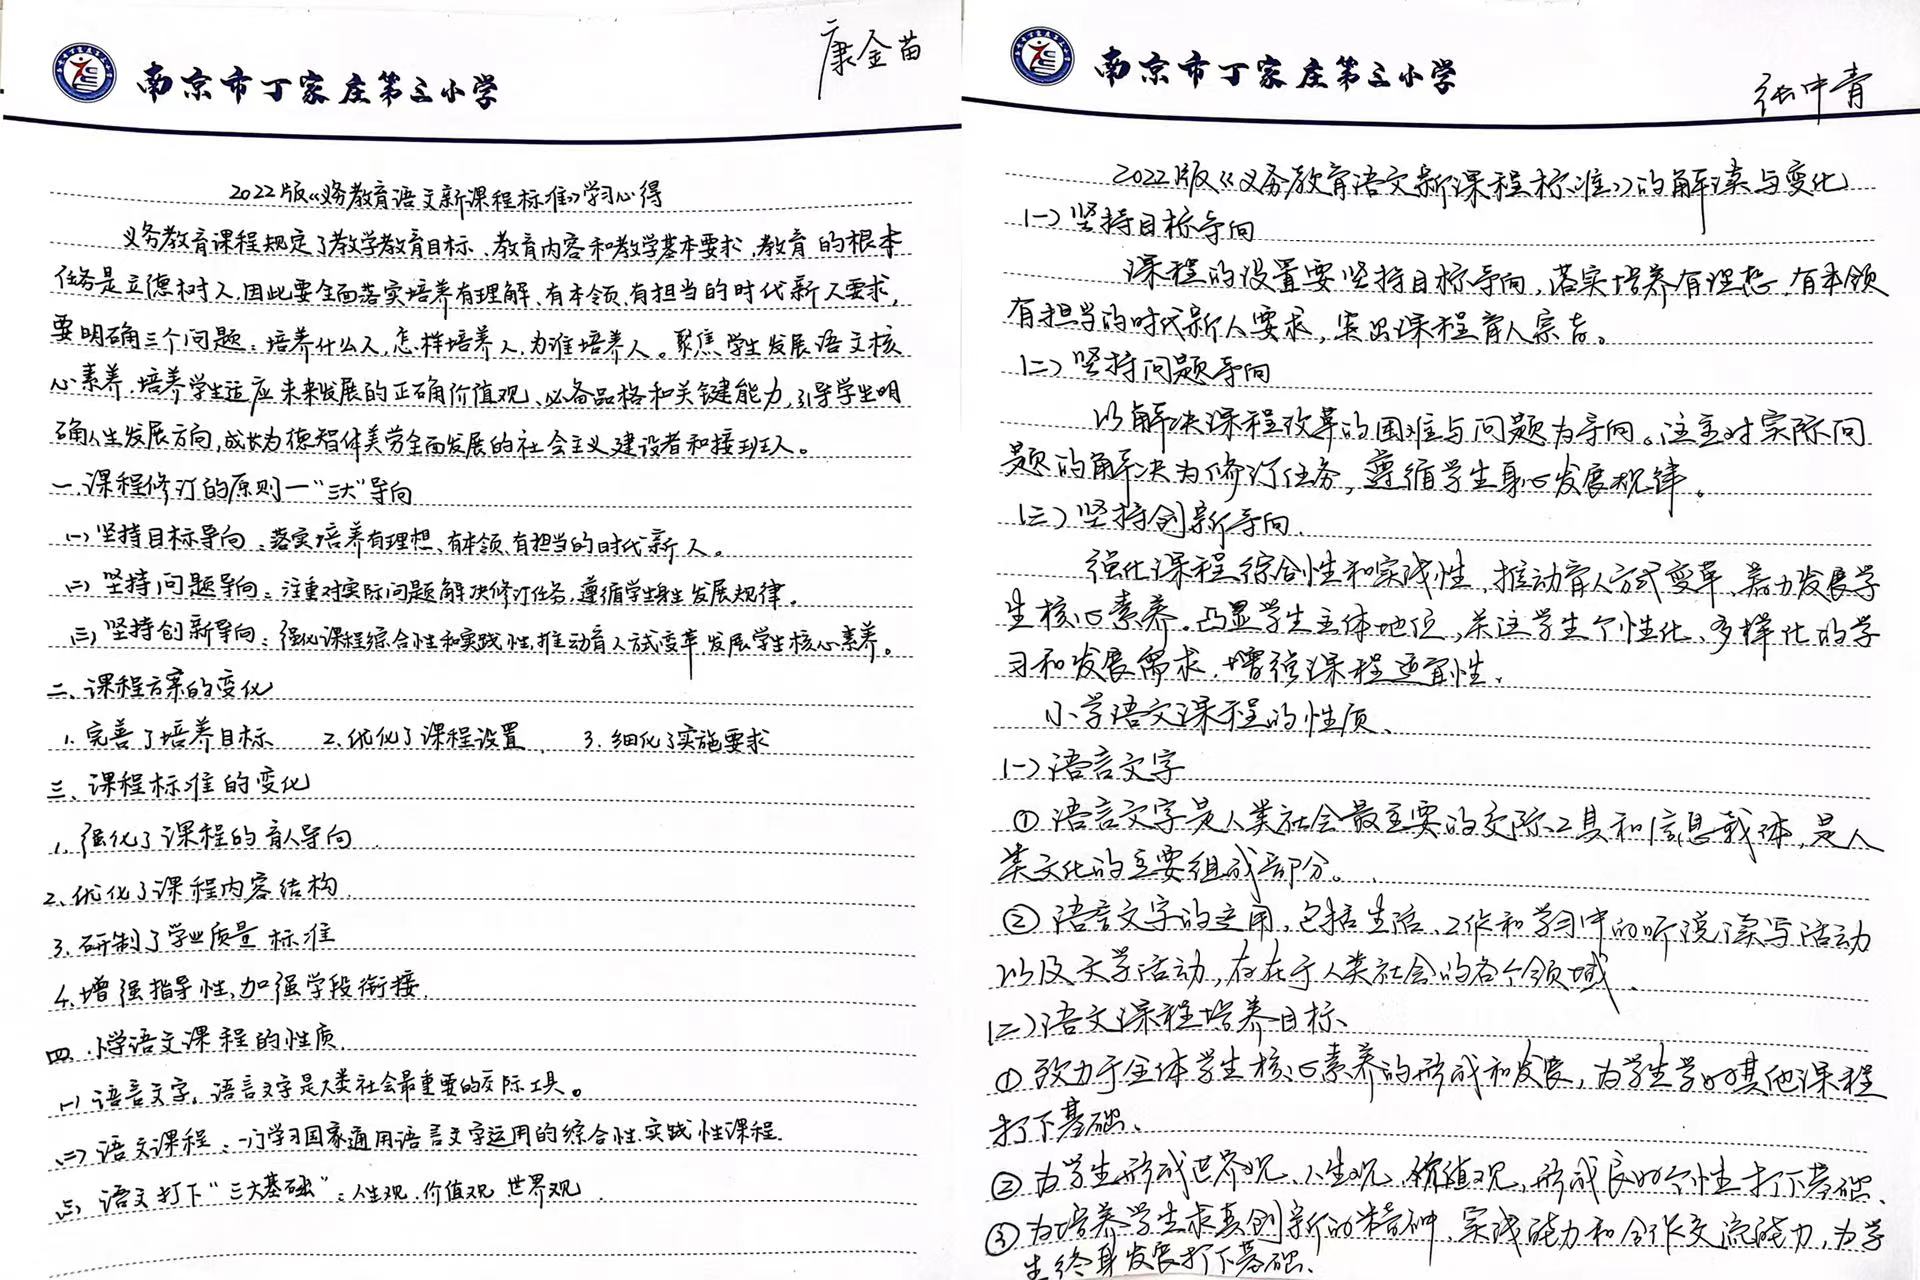 南京市丁家庄第三小学
康金苗
2022版《义务教育语文新课程标准》学习心得
义务教育课程规定了教学教育目标、教育内容和教学基本要求,教育的根本
任务是立德树人,因此要全面落实培养有理解、有本领、有担当的时代新人要求,
要明确三个问题:培养什么人,怎样培养人,为谁培养人。聚焦学生发展语文核
心素养,培养学生适应未来发展的正确价值观、必备品格和关键能力,引导学生明
确人生发展方向,成长为德智体美劳全面发展的社会主义建设者和接班人。
一、课程修订的原则—“三大”导向
(一)坚持目标导向:落实培养有理想、有本领、有担当的时代新人。
(二)坚持问题导向:注重对实际问题解决修订任务,遵循学生身心发展规律。
(三)坚持创新导向:强化课程综合性和实践性,推动育人方式变革,发展学生核心素养。
二、课程方案的变化
1.完善了培养目标 2.优化了课程设置 3.细化了实施要求
三、课程标准的变化
1.强化了课程的育人导向
2.优化了课程内容结构
3.研制了学业质量标准
4.增强指导性,加强学段衔接
四.小学语文课程的性质
(一)语言文字。语言文字是人类社会最重要的交际工具。
(二)语文课程:一门学习国家通用语言文字运用的综合性、实践性课程.
(三)语文打下“三大基础”:人生观.价值观 世界观
南京市丁家庄第三小学
张中青
2022版《义务教育语文新课程标准》的解读与变化
(一)坚持目标导向
课程的设置要坚持目标导向,落实培养有理想、有本领
有担当的时代新人要求,突出课程育人宗旨。
(二)坚持问题导向
以解决课程改革的困难与问题为导向。注重对实际问
题的解决为修订任务,遵循学生身心发展规律。
(三)坚持创新导向.
强化课程综合性和实践性,推动育人方式变革、着力发展学
生核心素养。凸显学生主体地位,关注学生个性化、多样化的学
习和发展需求,增强课程适宜性、
小学语文课程的性质、
(一)语言文字
①语言文字是人类社会最重要的交际工具和信息载体,是人
类文化的重要组成部分。
②语言文字的运用,包括生活、工作和学习中的听说读写活动
以及文学活动,存在于人类社会的各个领域、
(二)语文课程培养目标、
①致力于全体学生核心素养的形成和发展,为学生学好其他课程
打下基础、
②为学生形成世界观、人生观、价值观,形成良好个性打下基础、
③为培养学生求真创新的精神,实践能力和合作交流能力,为学
生终身发展打下基础.